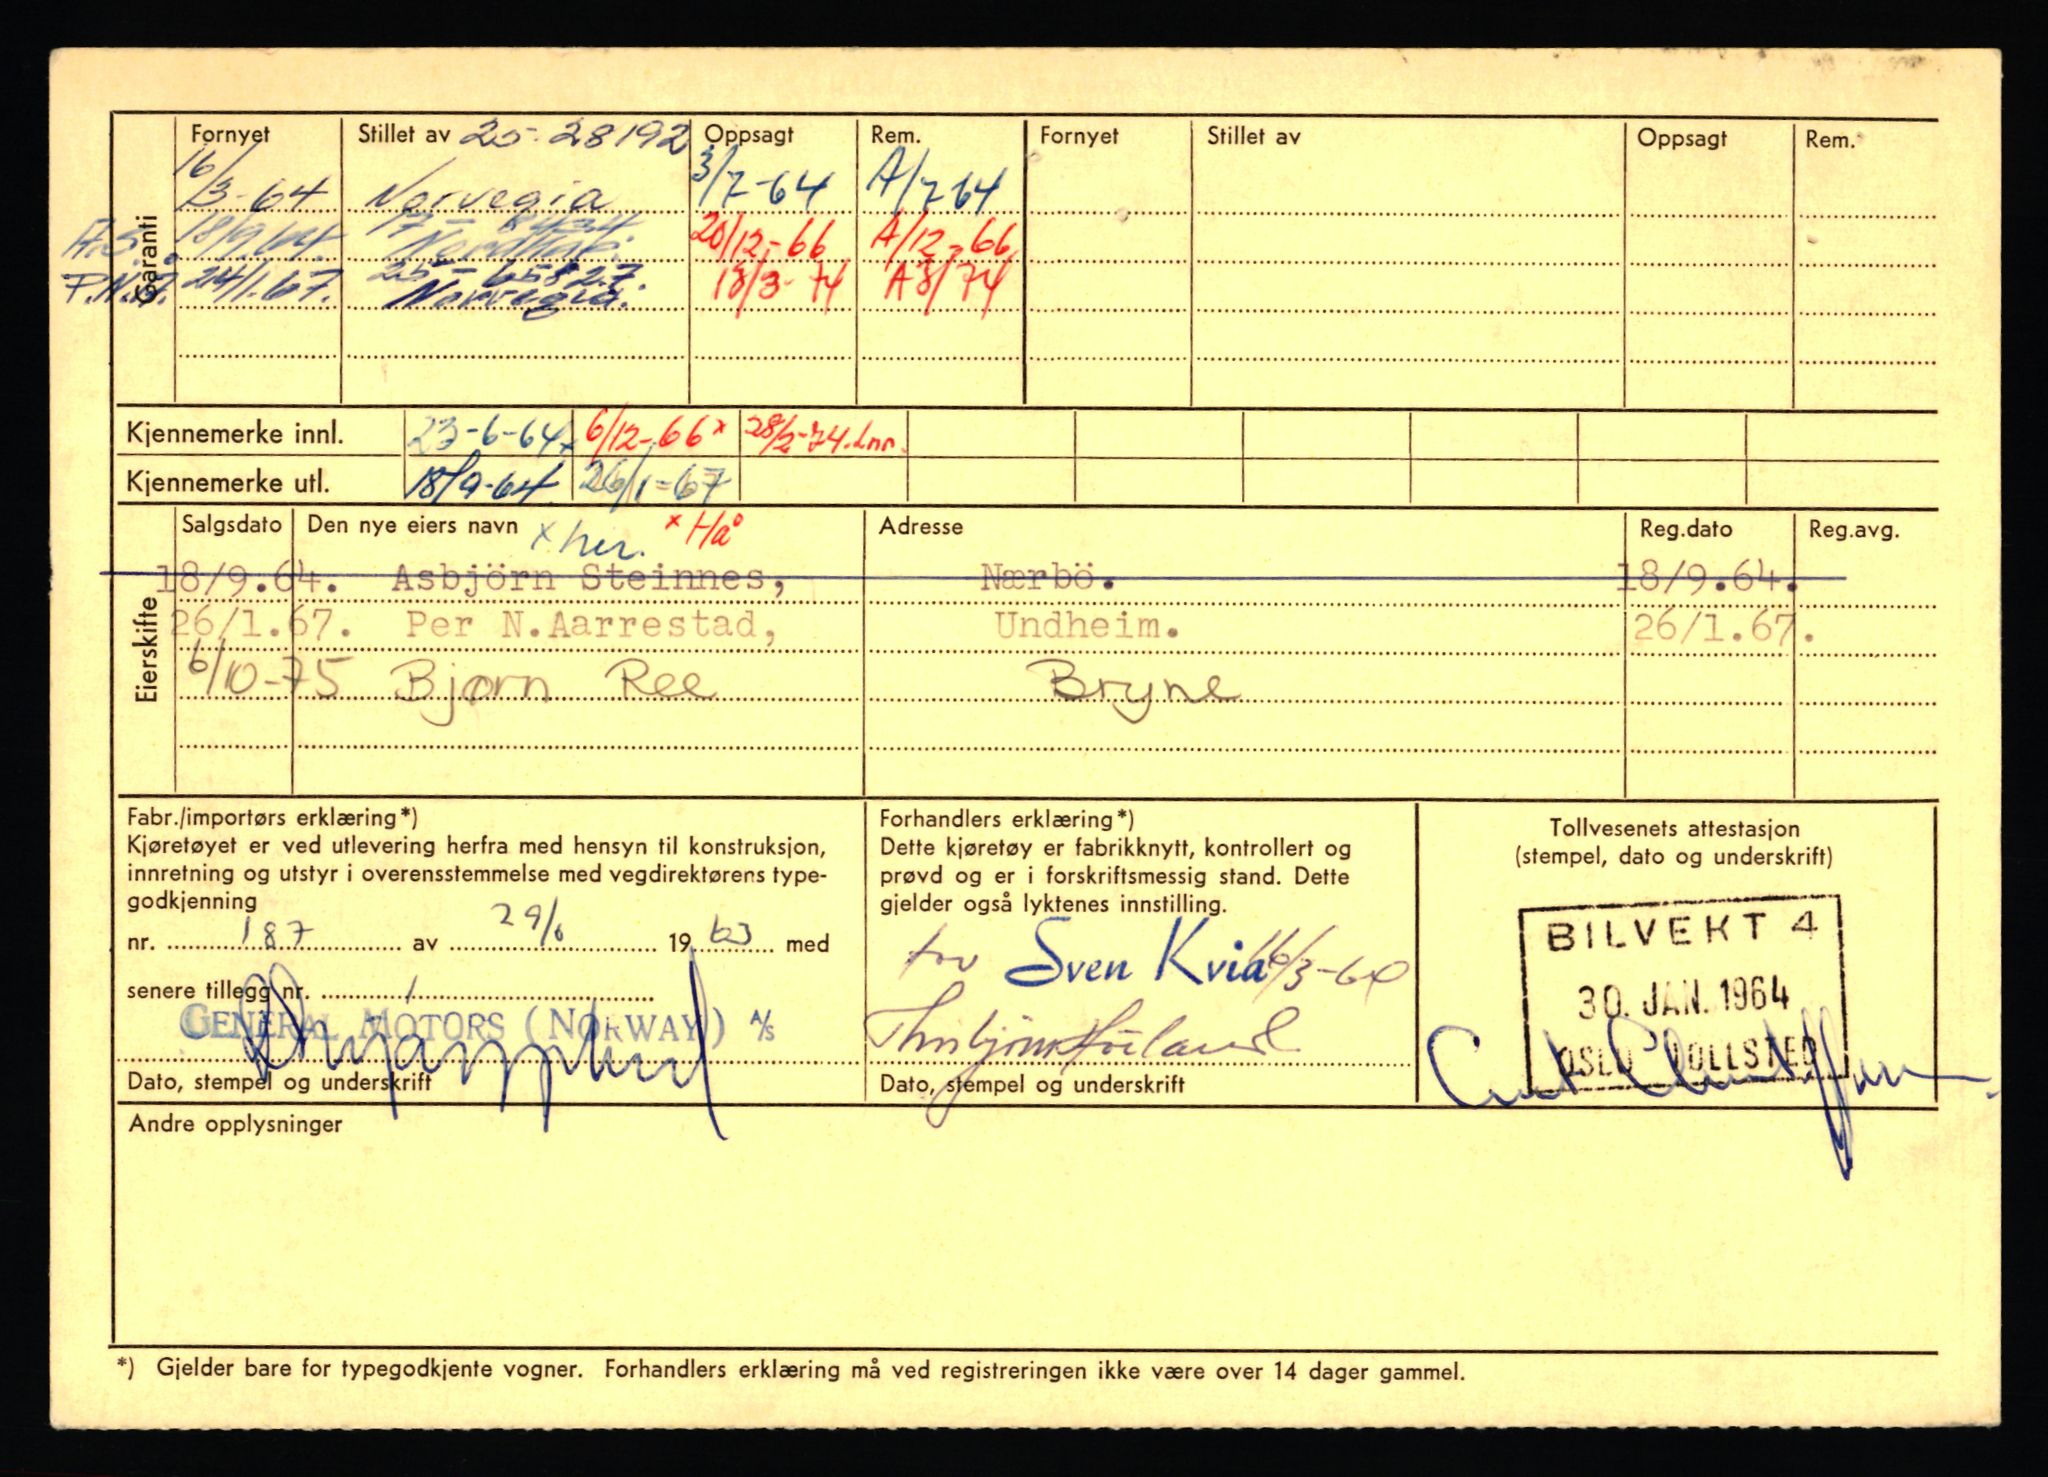 Garanti
Fornyet Stillet av 25-28192 Oppsagt Rem. Fornyet Stillet av Oppsagt Rem.
16/3-64 Norvegia 3/7-64 A/7 64
A.S. 18/9.64. 17- 8434 20/12-66 A/12-66
P.N.Å. 24/1.67. 25-65827. 18/3-74 A3/74
Norvegia.
Kjennemerke innl. 23-6-64x 6/12-66x 28/2-74. Inn.
Kjennemerke utl. 18/9-64 26/1=67
Eierskifte
Salgsdato Den nye eiers navn x her. x Hå Adresse Reg.dato Reg.avg.
18/9.64. Asbjörn Steinnes, Nærbö. 18/9.64.
26/1.67. Per N.Aarrestad, Undheim. 26/1.67.
6/10-75 Bjørn Ree Bryne
Fabr./importørs erklæring*)
Kjøretøyet er ved utlevering herfra med hensyn til konstruksjon,
innretning og utstyr i overensstemmelse med vegdirektørens type-
godkjenning
nr. 187 av 29/6 19 63 med
senere tillegg nr. 1
GENERAL MOTORS (NORWAY) A/S
Dato, stempel og underskrift
Forhandlers erklæring*)
Dette kjøretøy er fabrikknytt, kontrollert og
prøvd og er i forskriftsmessig stand. Dette
gjelder også lyktenes innstilling.
for Sven Kvia 16/3-64
Dato, stempel og underskrift
Tollvesenets attestasjon
(stempel, dato og underskrift)
BILVEKT 4
30. JAN. 1964
OSLO TOLLSTED
Andre opplysninger
*) Gjelder bare for typegodkjente vogner. Forhandlers erklæring må ved registreringen ikke være over 14 dager gammel.